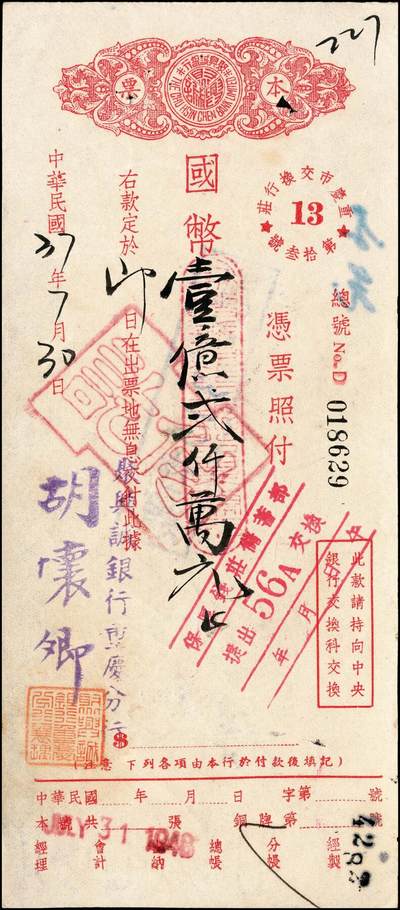 227
本票
重慶市交換行莊
13
第拾叁號
總號 No. D 018629
憑票照付
國幣壹億弍仟萬元正
右款定於即日在出票地無息兌付此據
中華民國37年7月30日
聚興誠銀行重慶分行
胡懷卿
莊儲蓄部
提出 56A 交換
年 月 日
此款請持向中央
銀行交換科交換
$
(注意 下列各項由本行於付款後填記)
中華民國 年 月 日 字第 號
本號共 張 銅牌第 號
JULY 31 1948
經理 會計 出納 總帳 分帳 經製